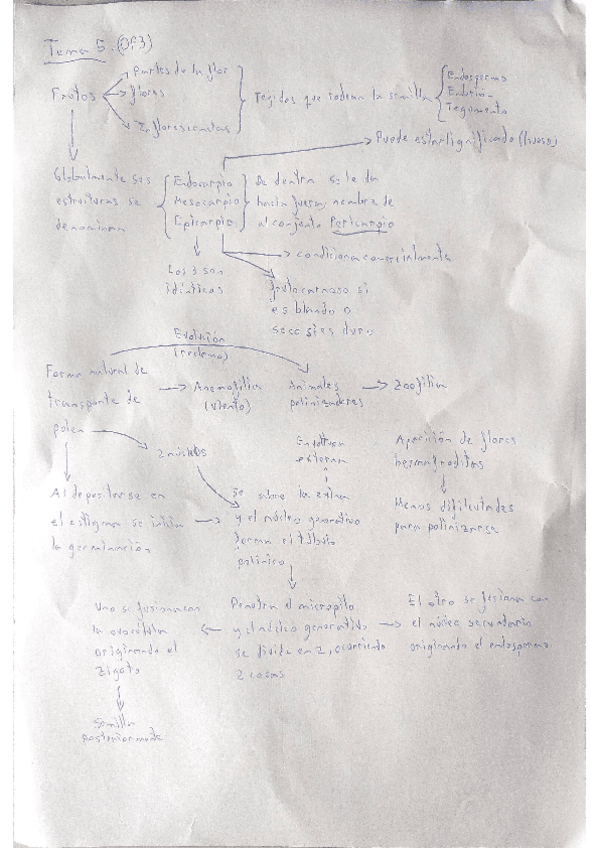 Tema 5. (DF3)
Partes de la flor
Frutos flores Tejidos que rodean la semilla
Inflorescencias
Endosperma
Embrión
Tegumento
Puede estar lignificado (hueso)
Globalmente sus
estructuras se
denominan
Endocarpio
Mesocarpio
Epicarpio
De dentro se le da
hacia fuera, nombre de
al conjunto Pericarpio
condiciona comercialmente
Los 3 son
idénticos
fruto carnoso si
es blando o
seco si es duro
Evolución
Forma natural de
transporte de
polen
Anemofilia
(viento)
Animales
polinizadores
Zoofilia
2 núcleos
Envoltura
externa
Aparición de flores
hermafroditas
Menos dificultades
para polinizarse
Al depositarse en
el estigma se inicia
la germinación
Se abre la exina
y el núcleo generativo
forma el tubo
polínico
Penetra el micropilo
y el núcleo generativo
se divide en 2, ocurriendo
2 cosas
Uno se fusiona con
la ovocélula
originando el
Zigoto
El otro se fusiona con
el núcleo secundario
originando el endosperma
Semilla
posteriormente